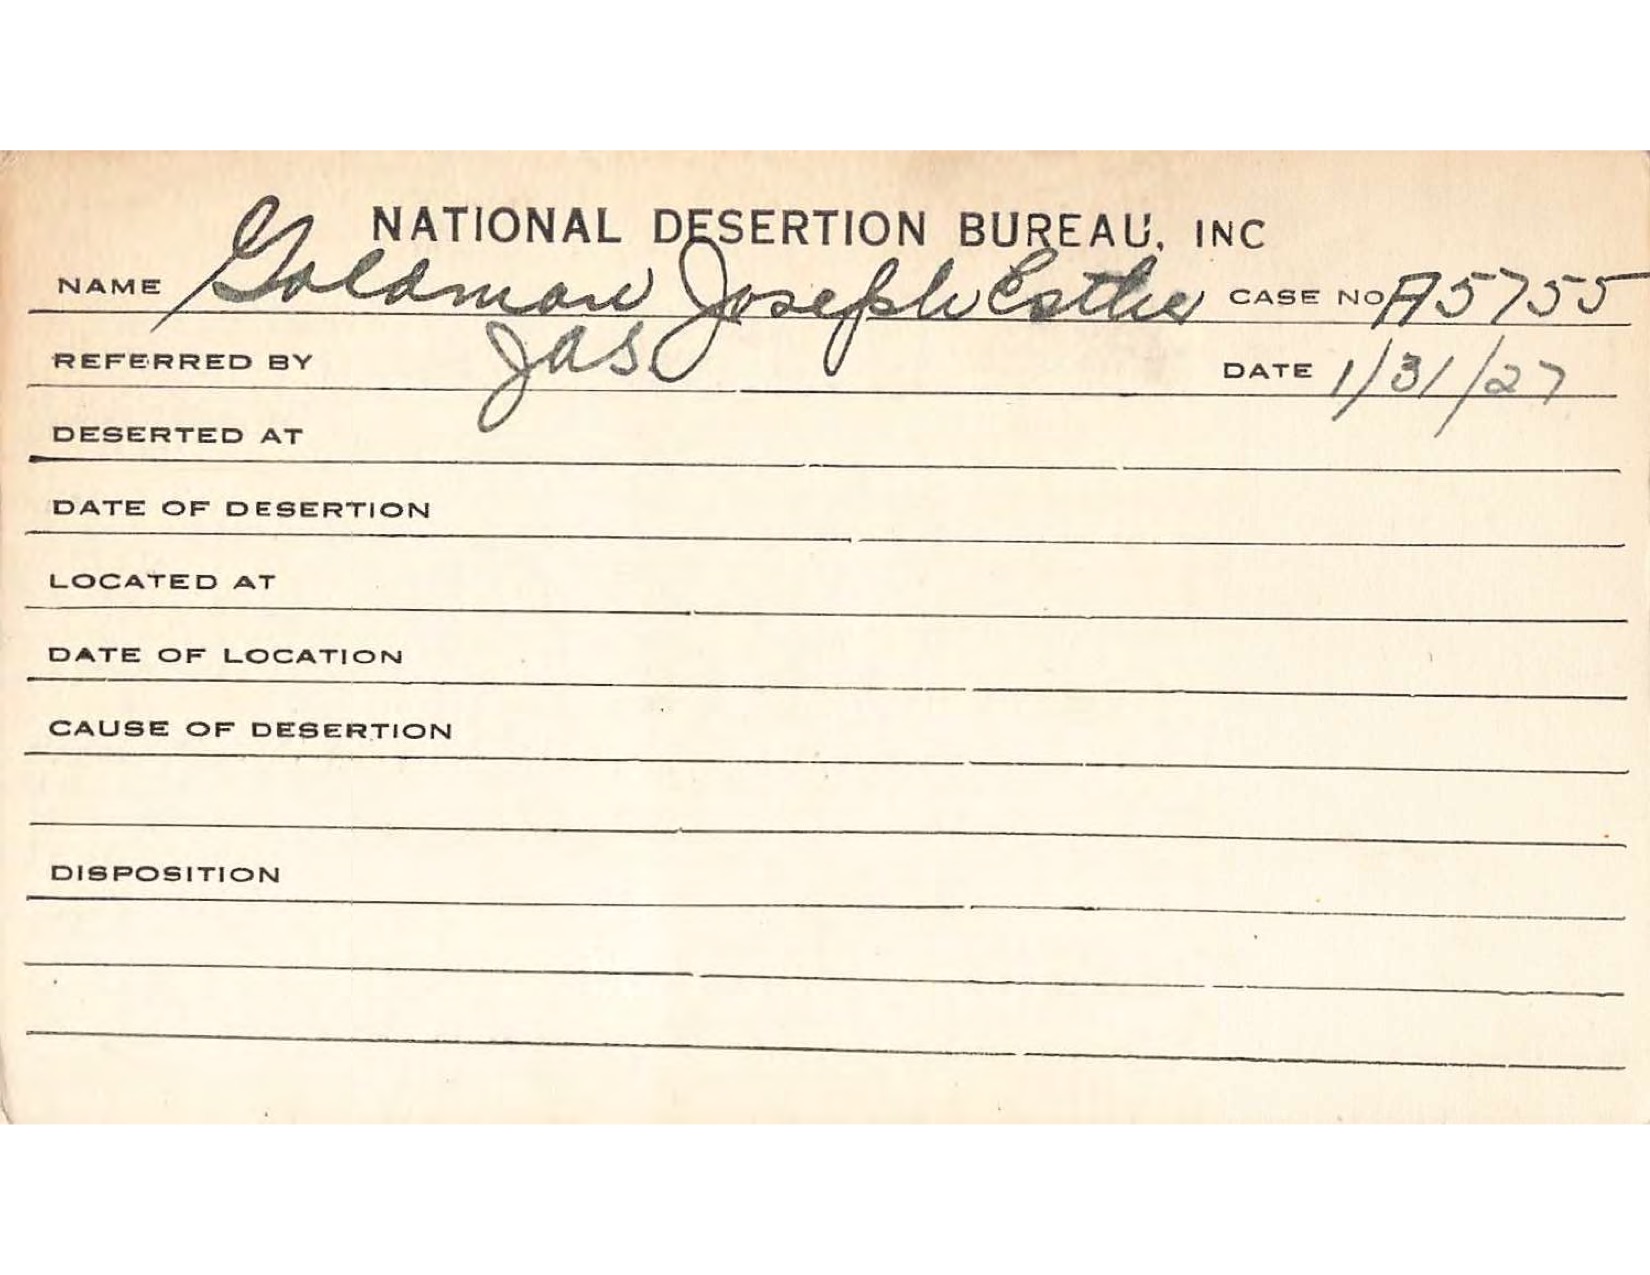 NATIONAL DESERTION BUREAU, INC
NAME Goldman Joseph Esther CASE NO A5755
REFERRED BY JAS DATE 1/31/27
DESERTED AT
DATE OF DESERTION
LOCATED AT
DATE OF LOCATION
CAUSE OF DESERTION
DISPOSITION